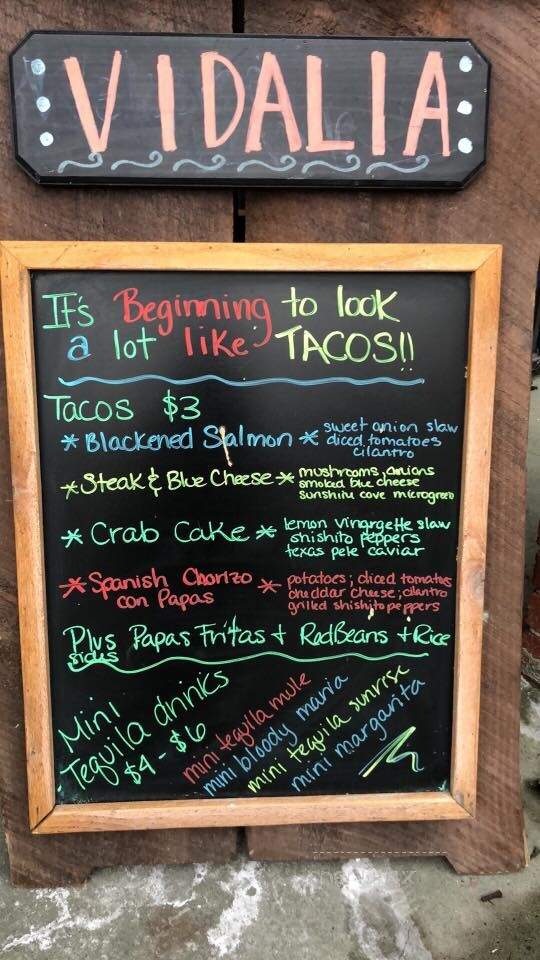 VIDALIA
It's Beginning to look
a lot like TACOS!!
Tacos $3
* Blackened Salmon * sweet onion slaw
diced tomatoes
cilantro
* Steak & Blue Cheese * mushrooms, onions
smoked blue cheese
sunshine cove microgreen
* Crab Cake * lemon vinargette slaw
shishito peppers
texas pete caviar
* Spanish Chorizo * potatoes; diced tomatoes
con Papas cheddar cheese; cilantro
grilled shishito peppers
Plus Papas Fritas + Red Beans + Rice
sides
Mini
Tequila drinks
$4 - $6
mini tequila mule
mini bloody maria
mini tequila sunrise
mini margarita